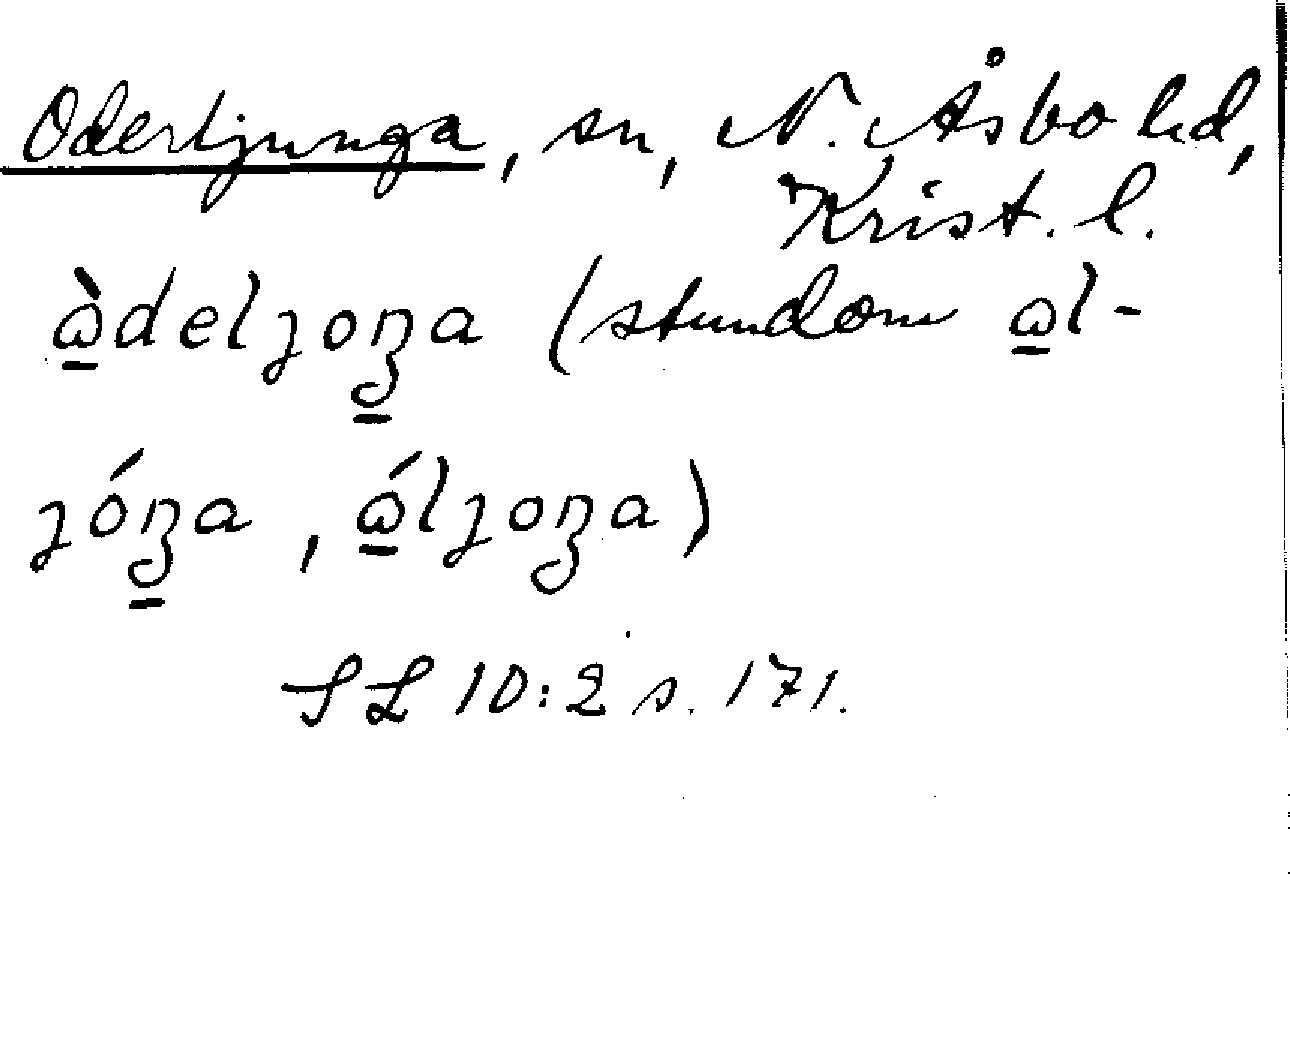 Oderljunga, sn, N. Åsbo hd,
Krist. l.
ὼ̱delȷoŋ̱a (stundom ω̱l-
ȷóŋ̱a, ώ̱lȷoŋa)
SL 10:2 s. 171.